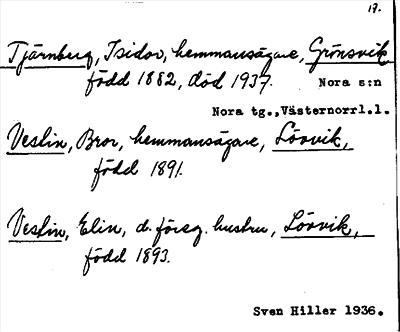 17.
Tjärnberg, Isidor, hemmansägare, Grönsvik
född 1882, död 1937. Nora s:n
Nora tg., Västernorrl.l.
Veslin, Bror, hemmansägare, Lövvik,
född 1891.
Veslin, Elin, d. föreg. hustru, Lövvik,
född 1893.
Sven Hiller 1936.